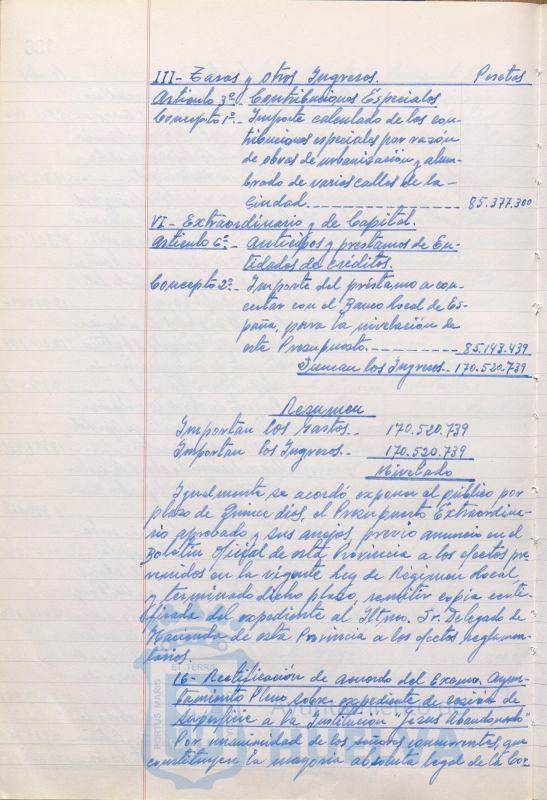 III- Tasas y otros Ingresos. Pesetas
Artículo 3º. Contribuciones Especiales
Concepto 1º.- Importe calculado de las con-
tribuciones especiales por razón
de obras de urbanización y alum-
brado de varias calles de la
Ciudad. 85.377.300
VI- Extraordinario y de Capital.
Artículo 6º.- Anticipos y prestamos de En-
tidades de Créditos.
Concepto 2º.- Importe del préstamo a con-
certar con el Banco Local de Es-
paña, para la nivelación de
este Presupuesto. 85.143.439
Suman los Ingresos.- 170.520.739
Resumen
Importan los Gastos.- 170.520.739
Importan los Ingresos.- 170.520.739
Nivelado
Igualmente se acordó, exponer al público por
plazo de Quince días, el Presupuesto Extraordina-
rio aprobado y sus anejos, previo anuncio en el
Boletín Oficial de esta Provincia a los efectos pre-
venidos en la vigente Ley de Régimen Local,
y terminado dicho plazo, remitir copia certi-
ficada del expediente al Iltmo. Sr. Delegado de
Hacienda de esta Provincia a los efectos reglamen-
tarios.
16- Rectificación de acuerdo del Excmo. Ayun-
tamiento Pleno sobre expediente de cesión de
superficie a la Institución "Jesus Abandonado"
Por unanimidad de los señores concurrentes, que
constituyen la mayoría absoluta legal de la Cor-
ET TERRÆ
PORTUS MARIS
HUELVA